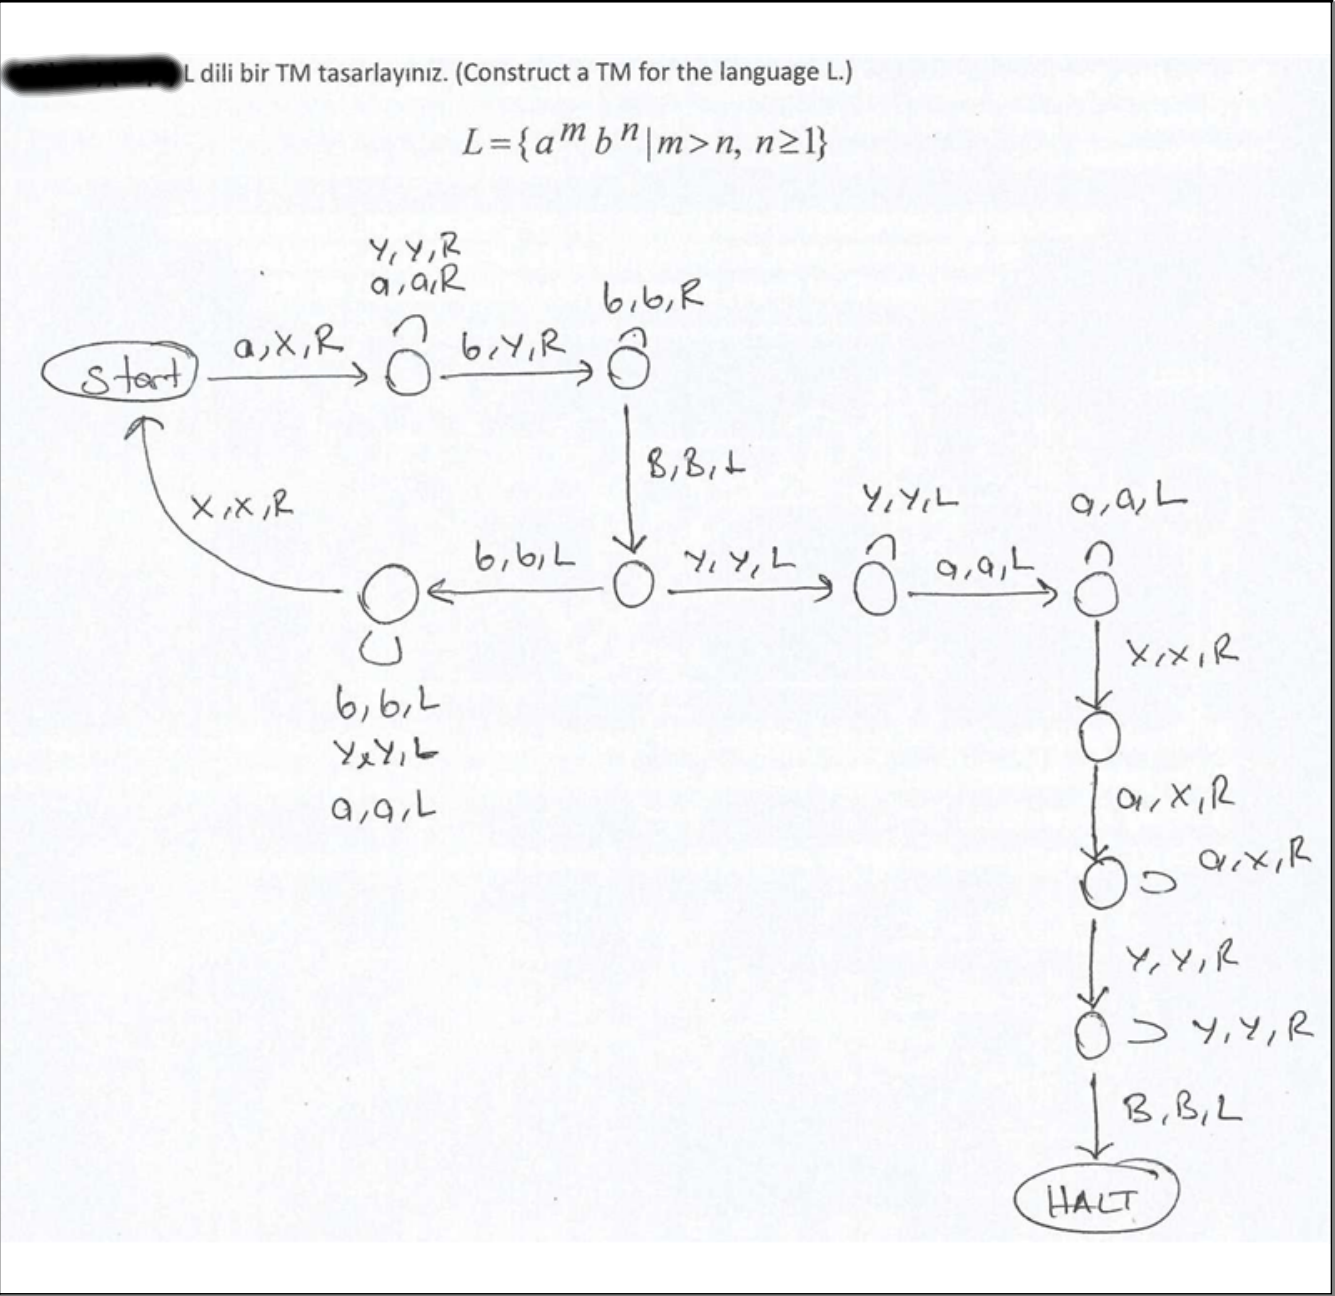 L dili bir TM tasarlayınız. (Construct a TM for the language L.)
L={a^m b^n|m>n, n≥1}
y,y,R
a,a,R
b,b,R
a,x,R
b,y,R
Start
B,B,L
x,x,R
y,y,L
a,a,L
b,b,L
y,y,L
a,a,L
x,x,R
b,b,L
y,y,L
a,a,L
a,x,R
a,x,R
y,y,R
y,y,R
B,B,L
HALT